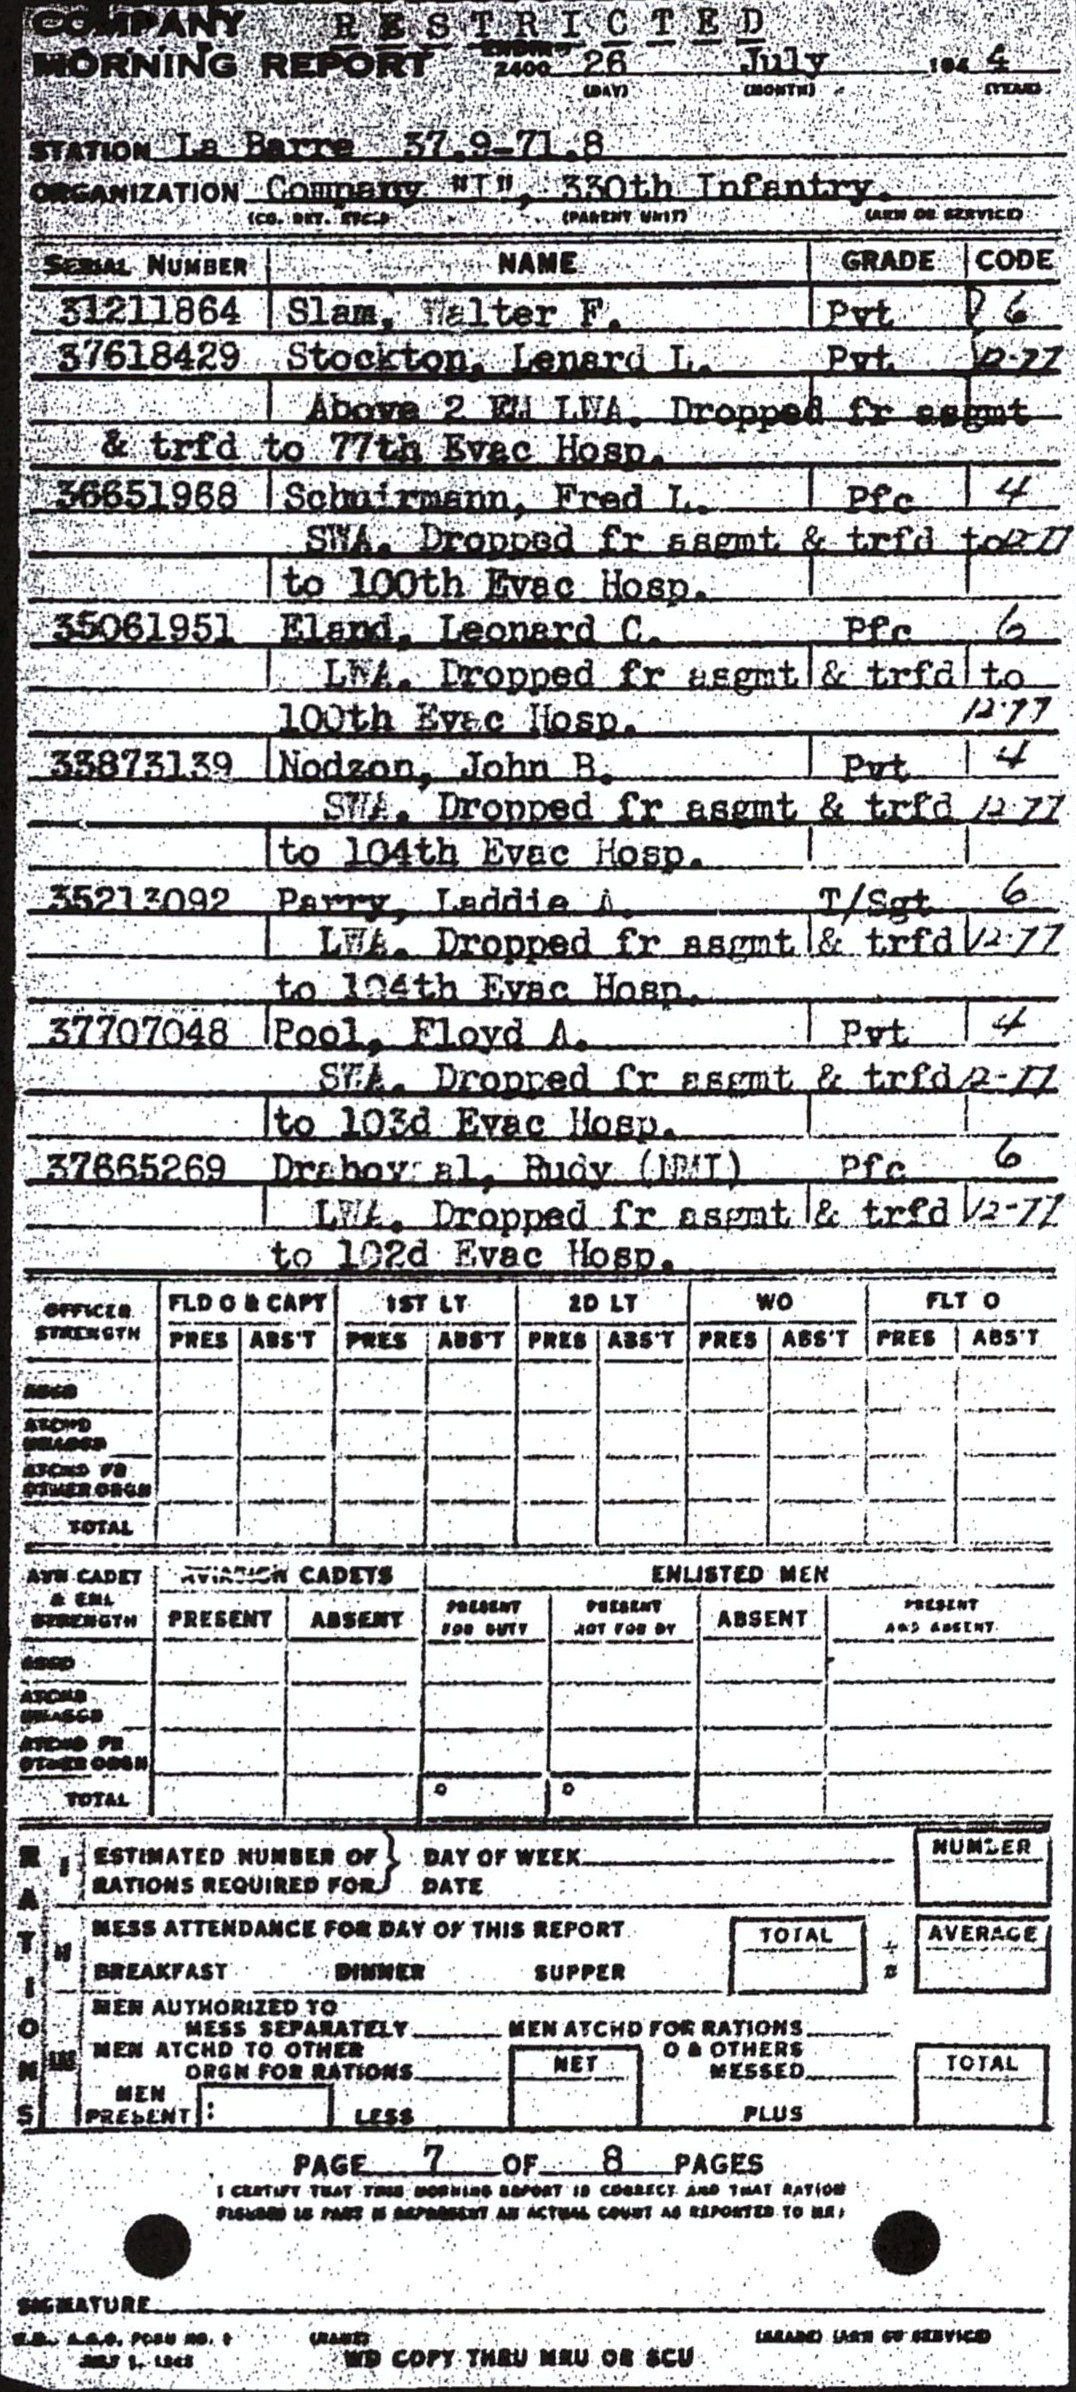 COMPANY RESTRICTED
MORNING REPORT ENDING 2400 26 July 194 4
(DAY) (MONTH) (YEAR)
STATION La Barre 37.9-71.8
ORGANIZATION Company "I", 330th Infantry.
(CO. DET. ETC.) (PARENT UNIT) (ARM OR SERVICE)
SERIAL NUMBER NAME GRADE CODE
31211864 Slam, Walter F. Pvt 6
37618429 Stockton, Lenard L. Pvt 12-77
Above 2 EM LWA. Dropped fr asgmt
& trfd to 77th Evac Hosp.
36651968 Schuirmann, Fred L. Pfc 4
SWA. Dropped fr asgmt & trfd to 12-77
to 100th Evac Hosp.
35061951 Eland, Leonard C. Pfc 6
LWA. Dropped fr asgmt & trfd to
100th Evac Hosp. 12-77
33873139 Nodzon, John B. Pvt 4
SWA. Dropped fr asgmt & trfd 12-77
to 104th Evac Hosp.
35213092 Parry, Laddie A. T/Sgt 6
LWA. Dropped fr asgmt & trfd 12-77
to 104th Evac Hosp.
37707048 Pool, Floyd A. Pvt 4
SWA. Dropped fr asgmt & trfd 12-77
to 103d Evac Hosp.
37665269 Rudy (NMI) Pfc 6
LWA. Dropped fr asgmt & trfd 12-77
to 102d Evac Hosp.
OFFICER STRENGTH FLD O & CAPT 1ST LT 2D LT WO FLT O
PRES ABS'T PRES ABS'T PRES ABS'T PRES ABS'T PRES ABS'T
ASGD
ATCHD UNASGD
ATCHD FR OTHER ORGN
TOTAL
AVN CADET & ENL STRENGTH AVIATION CADETS ENLISTED MEN
PRESENT ABSENT PRESENT FOR DUTY PRESENT NOT FOR DY ABSENT PRESENT AND ABSENT
ASGD
ATCHD UNASGD
ATCHD FR OTHER ORGN
TOTAL
RATIONS
I ESTIMATED NUMBER OF DAY OF WEEK NUMBER
RATIONS REQUIRED FOR DATE
II MESS ATTENDANCE FOR DAY OF THIS REPORT TOTAL AVERAGE
BREAKFAST DINNER SUPPER
III MEN AUTHORIZED TO
MESS SEPARATELY MEN ATCHD FOR RATIONS
MEN ATCHD TO OTHER NET O & OTHERS TOTAL
ORGN FOR RATIONS MESSED
MEN
PRESENT LESS PLUS
PAGE 7 OF 8 PAGES
I CERTIFY THAT THIS MORNING REPORT IS CORRECT AND THAT RATION
FIGURES IN PART III REPRESENT AN ACTUAL COUNT AS REPORTED TO ME:
SIGNATURE
W.D., A.G.O. FORM NO. 1 (NAME) (GRADE) (ARM OR SERVICE)
JULY 1, 1943 WD COPY THRU MRU OR SCU